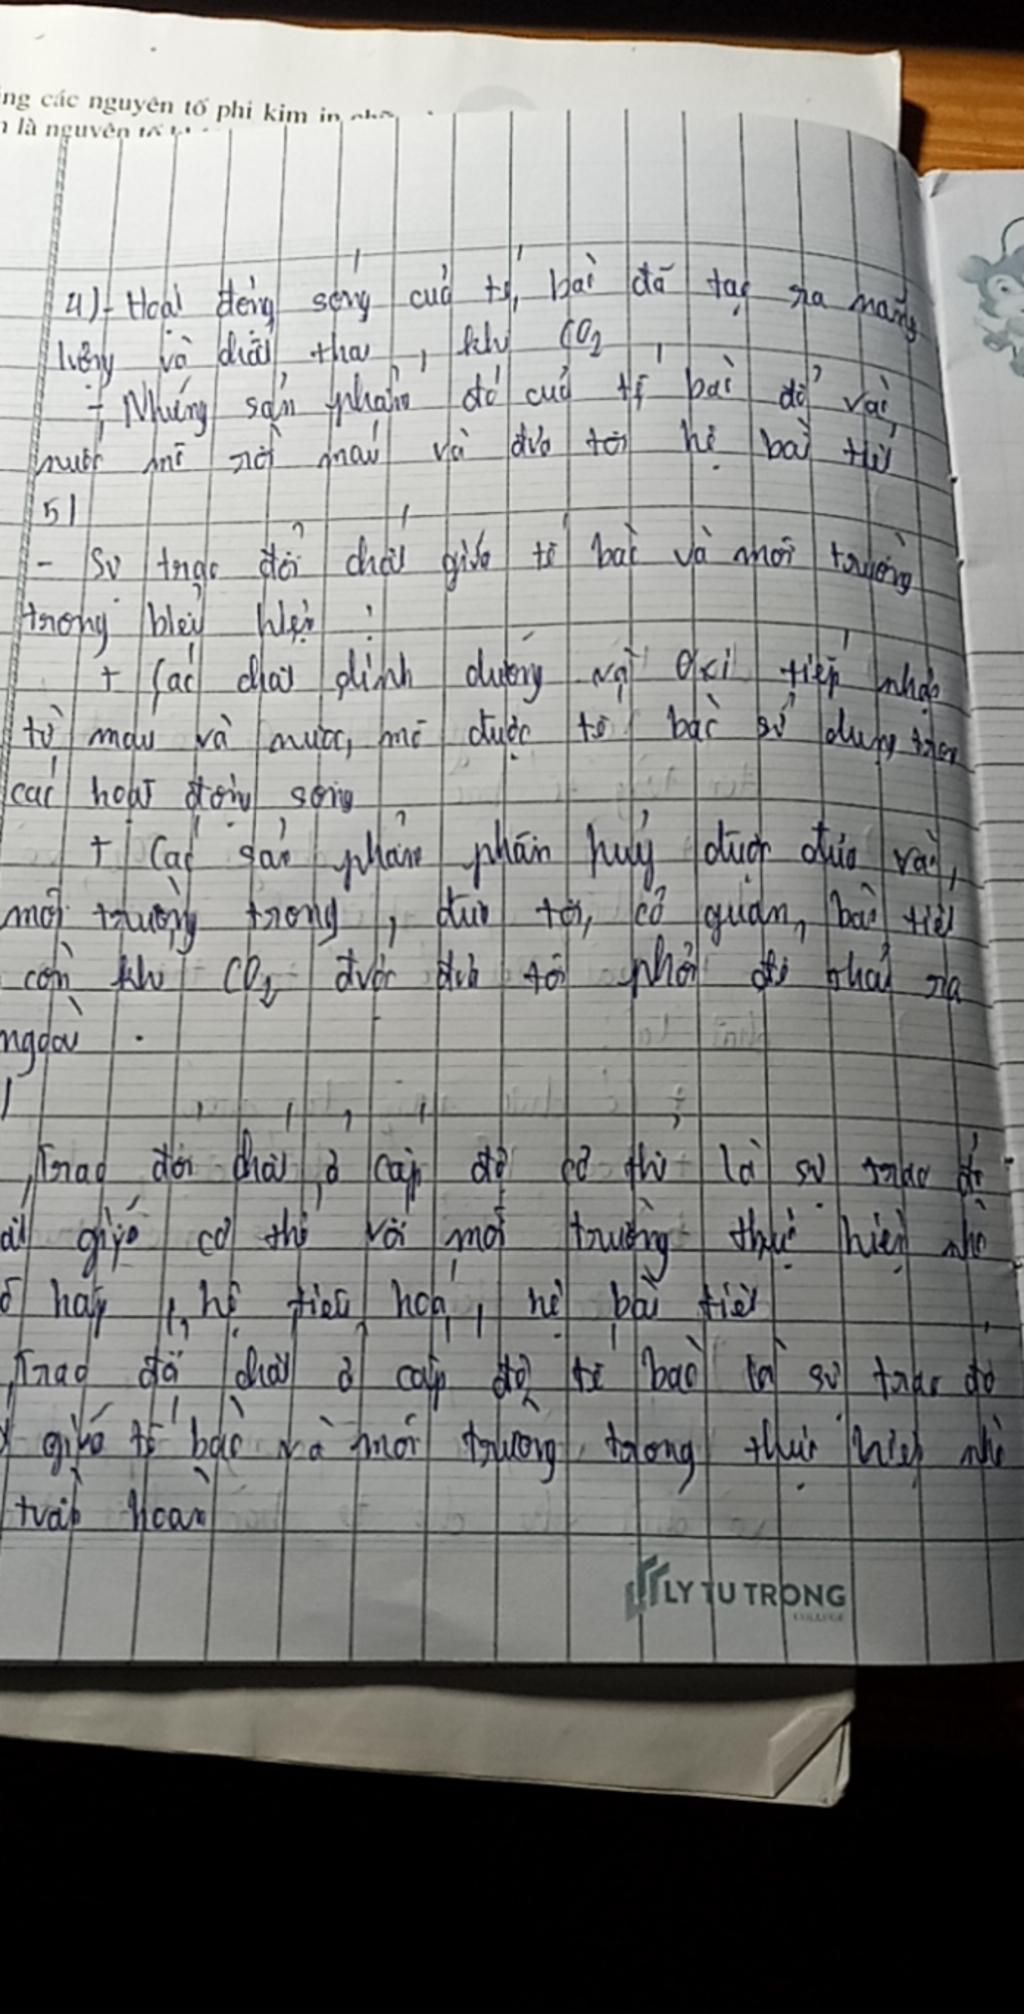 ng các nguyên tố phi kim in
là nguyên tố
4)- Hoạt động sống của tế bào đã tạo ra năng
lượng và chất thải, khí CO2,
- Những sản phẩm đó của tế bào đổ vào
nước mô rồi máu và đưa tới hệ bài tiết
5)
- Sự trao đổi chất giữa tế bào và môi trường
trong biểu hiện:
+ Các chất dinh dưỡng và Oxi tiếp nhận
từ máu và nước mô được tế bào sử dụng trong
các hoạt động sống
+ Các sản phẩm phân huỷ được đưa vào
môi trường trong, đưa tới cơ quan bài tiết
còn khí CO2 được đưa tới phổi để thải ra
ngoài.
Trao đổi chất ở cấp độ cơ thể là sự trao đổi
giữa cơ thể với môi trường thực hiện nhờ
hệ tiêu hoá, hệ bài tiết
Trao đổi chất ở cấp độ tế bào là sự trao đổi
giữa tế bào và môi trường trong thực hiện nhờ
tuần hoàn
LY TU TRONG
COLLEGE